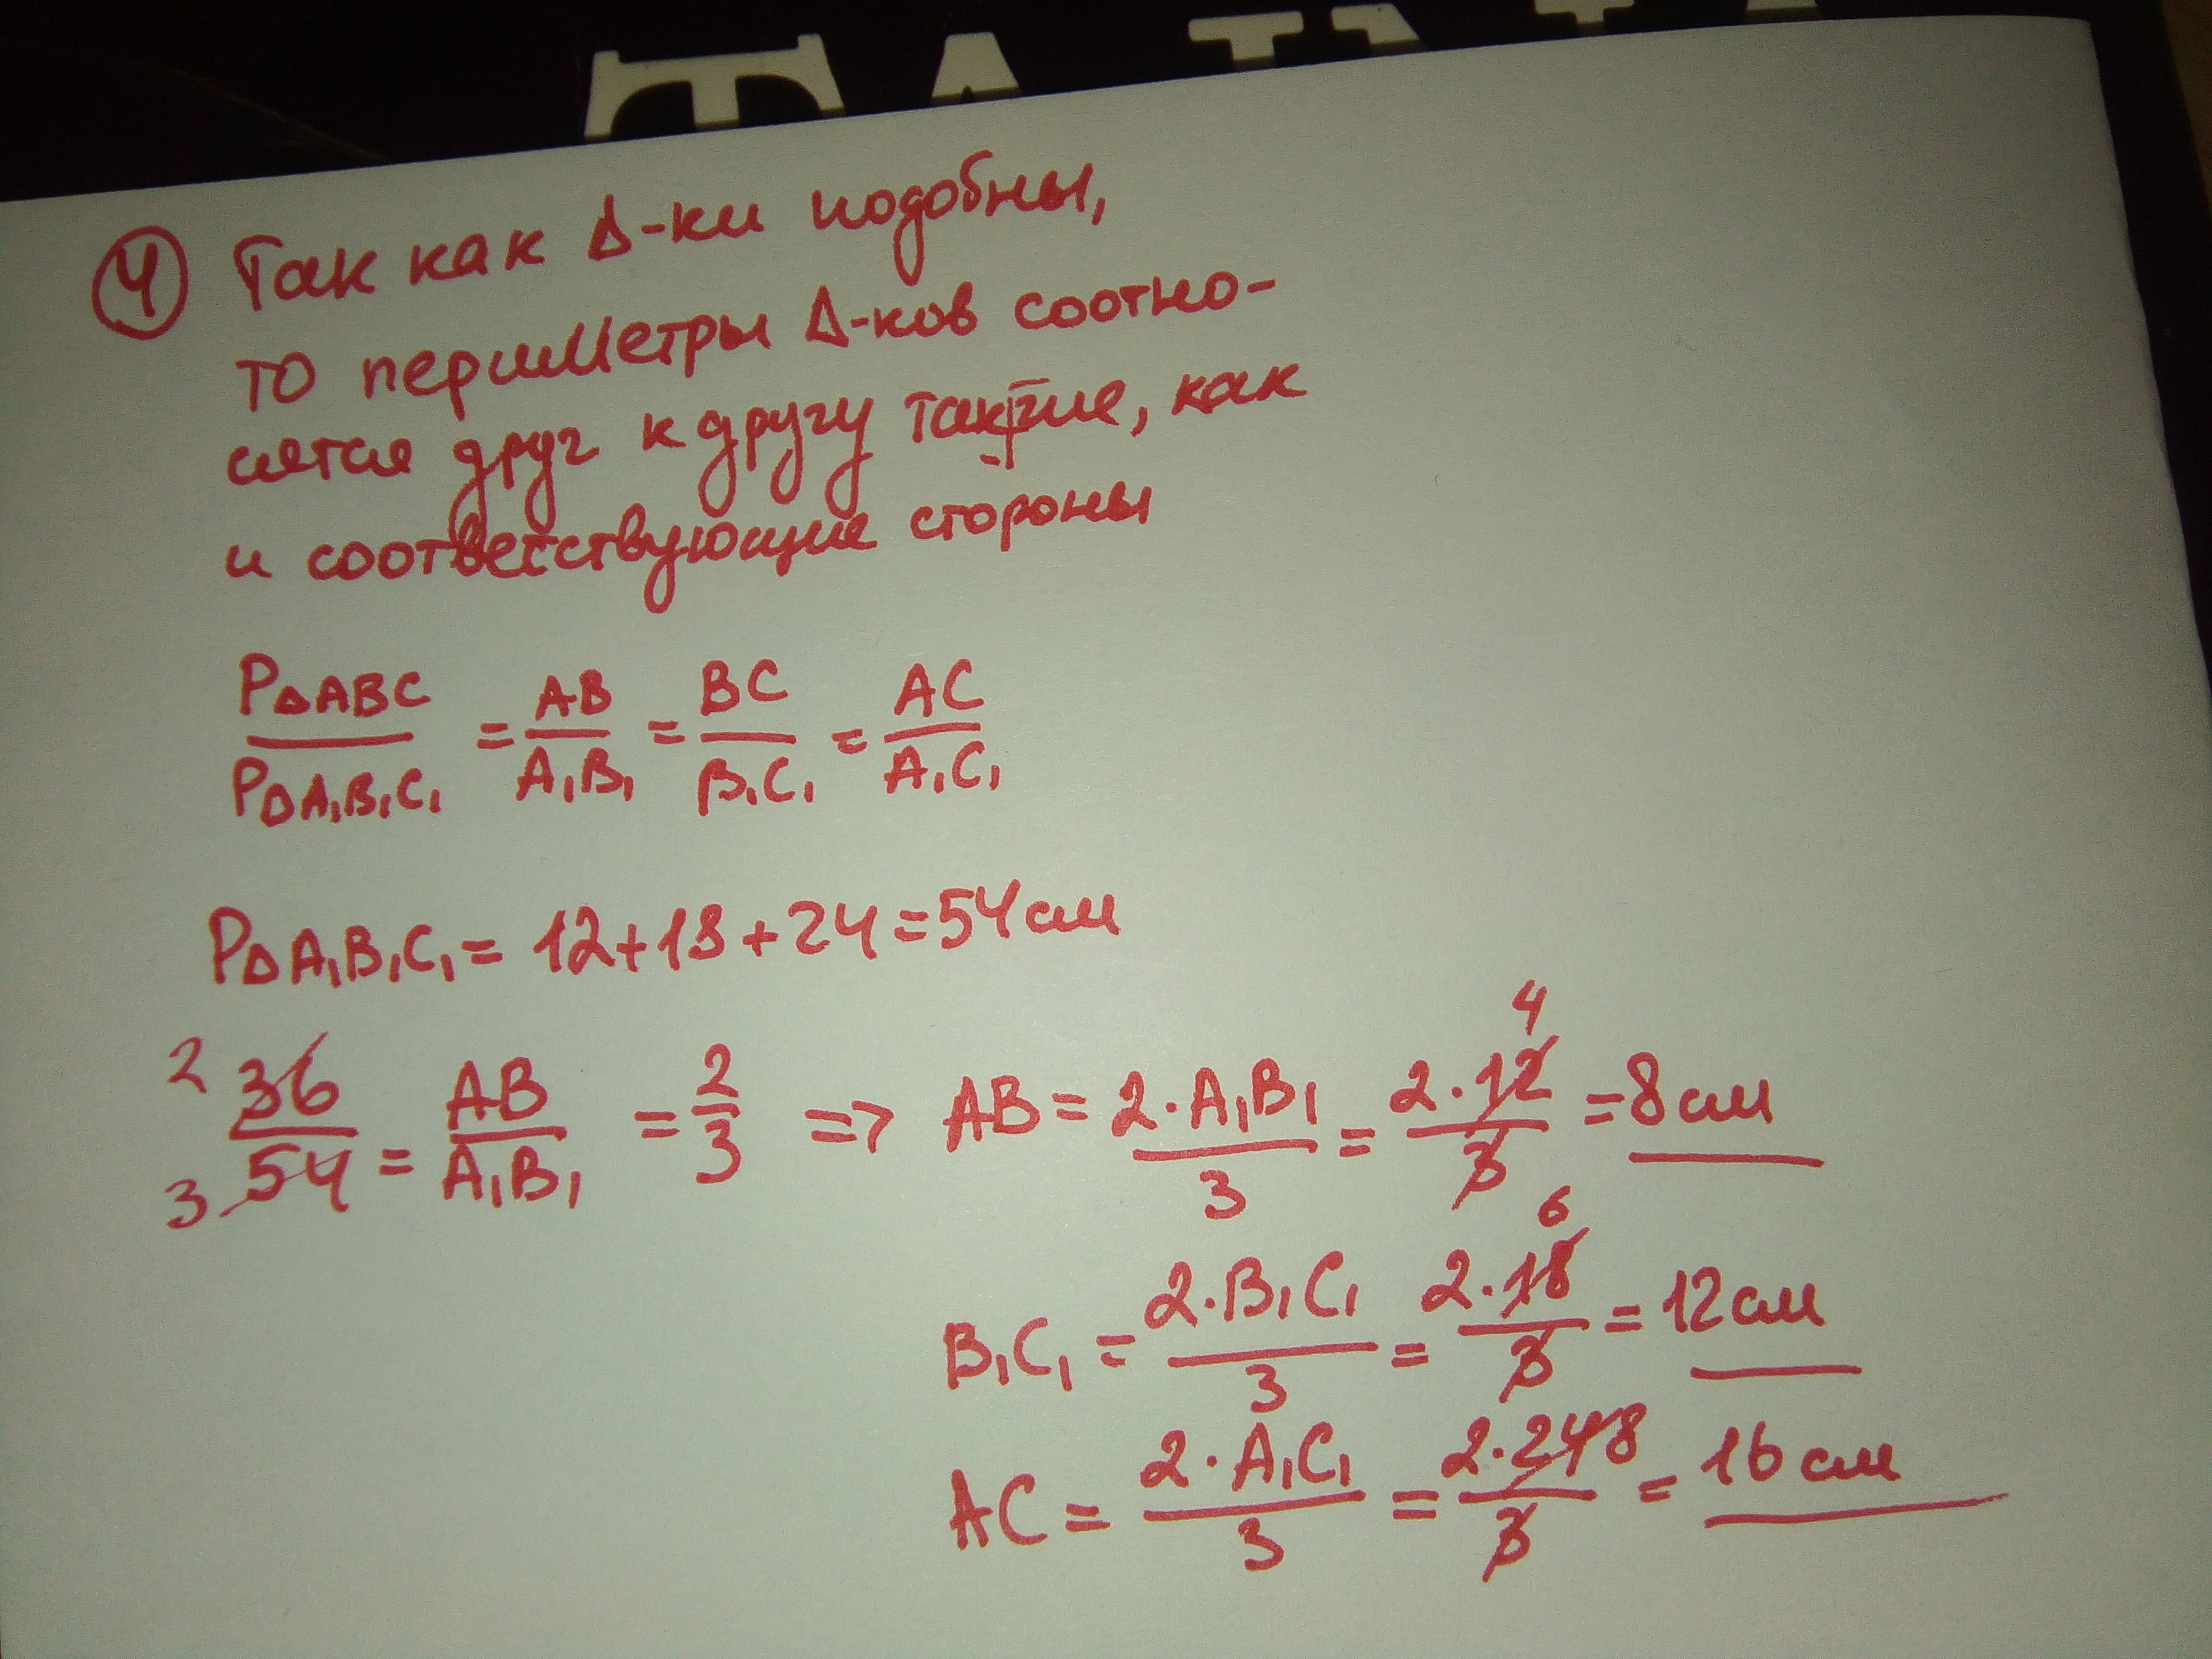 ④ Так как Δ-ки подобны,
то периметры Δ-ков соотно-
сятся друг к другу также, как
и соответствующие стороны
PΔABC / PΔA₁B₁C₁ = AB / A₁B₁ = BC / B₁C₁ = AC / A₁C₁
PΔA₁B₁C₁ = 12+18+24=54см
2 36 / 3 54 = AB / A₁B₁ = 2/3 => AB = 2·A₁B₁ / 3 = 2·12 4 / 3 = 8см
B₁C₁ = 2·B₁C₁ / 3 = 2·18 6 / 3 = 12см
AC = 2·A₁C₁ / 3 = 2·24 8 / 3 = 16см